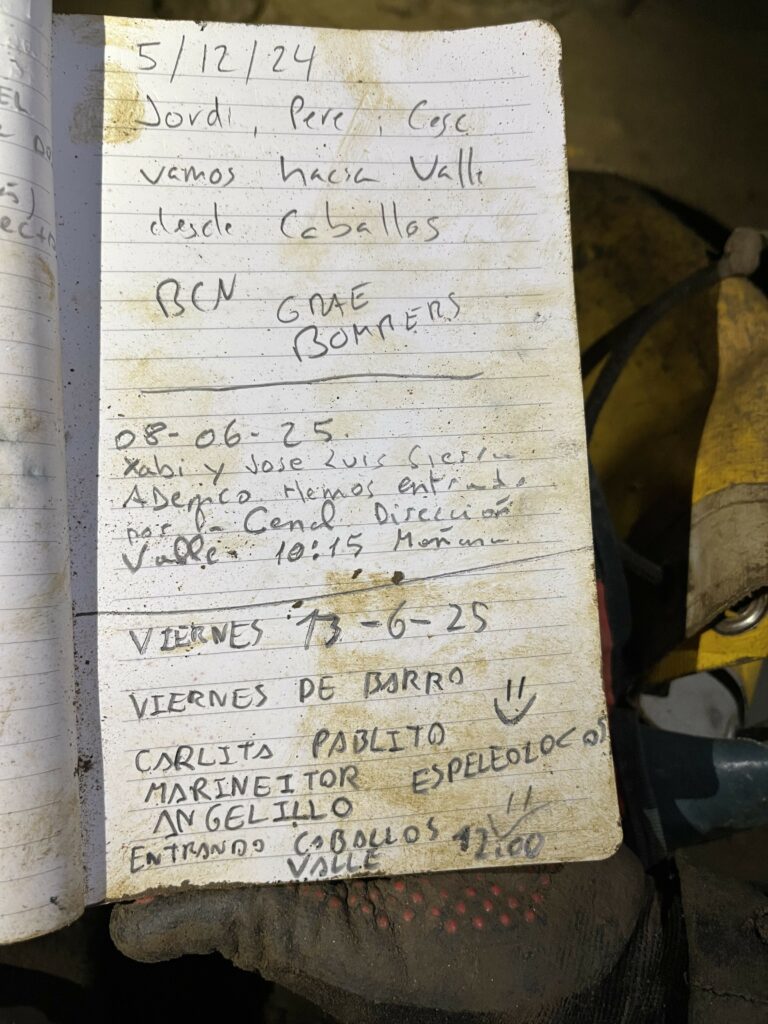 5/12/24
Jordi, Pere, Cesc
vamos hacia Valle
desde Caballos
BCN GRAE
BOMBERS
08-06-25.
Xabi y Jose Luis
Hemos entrado
por la Dirección
Valle. 10:15 Mañana
VIERNES 13-6-25
VIERNES DE BARRO
CARLITA PABLITO
MARINEITOR ESPELEOLOCOS
ANGELILLO
ENTRANDO CABALLOS 12:00
VALLE